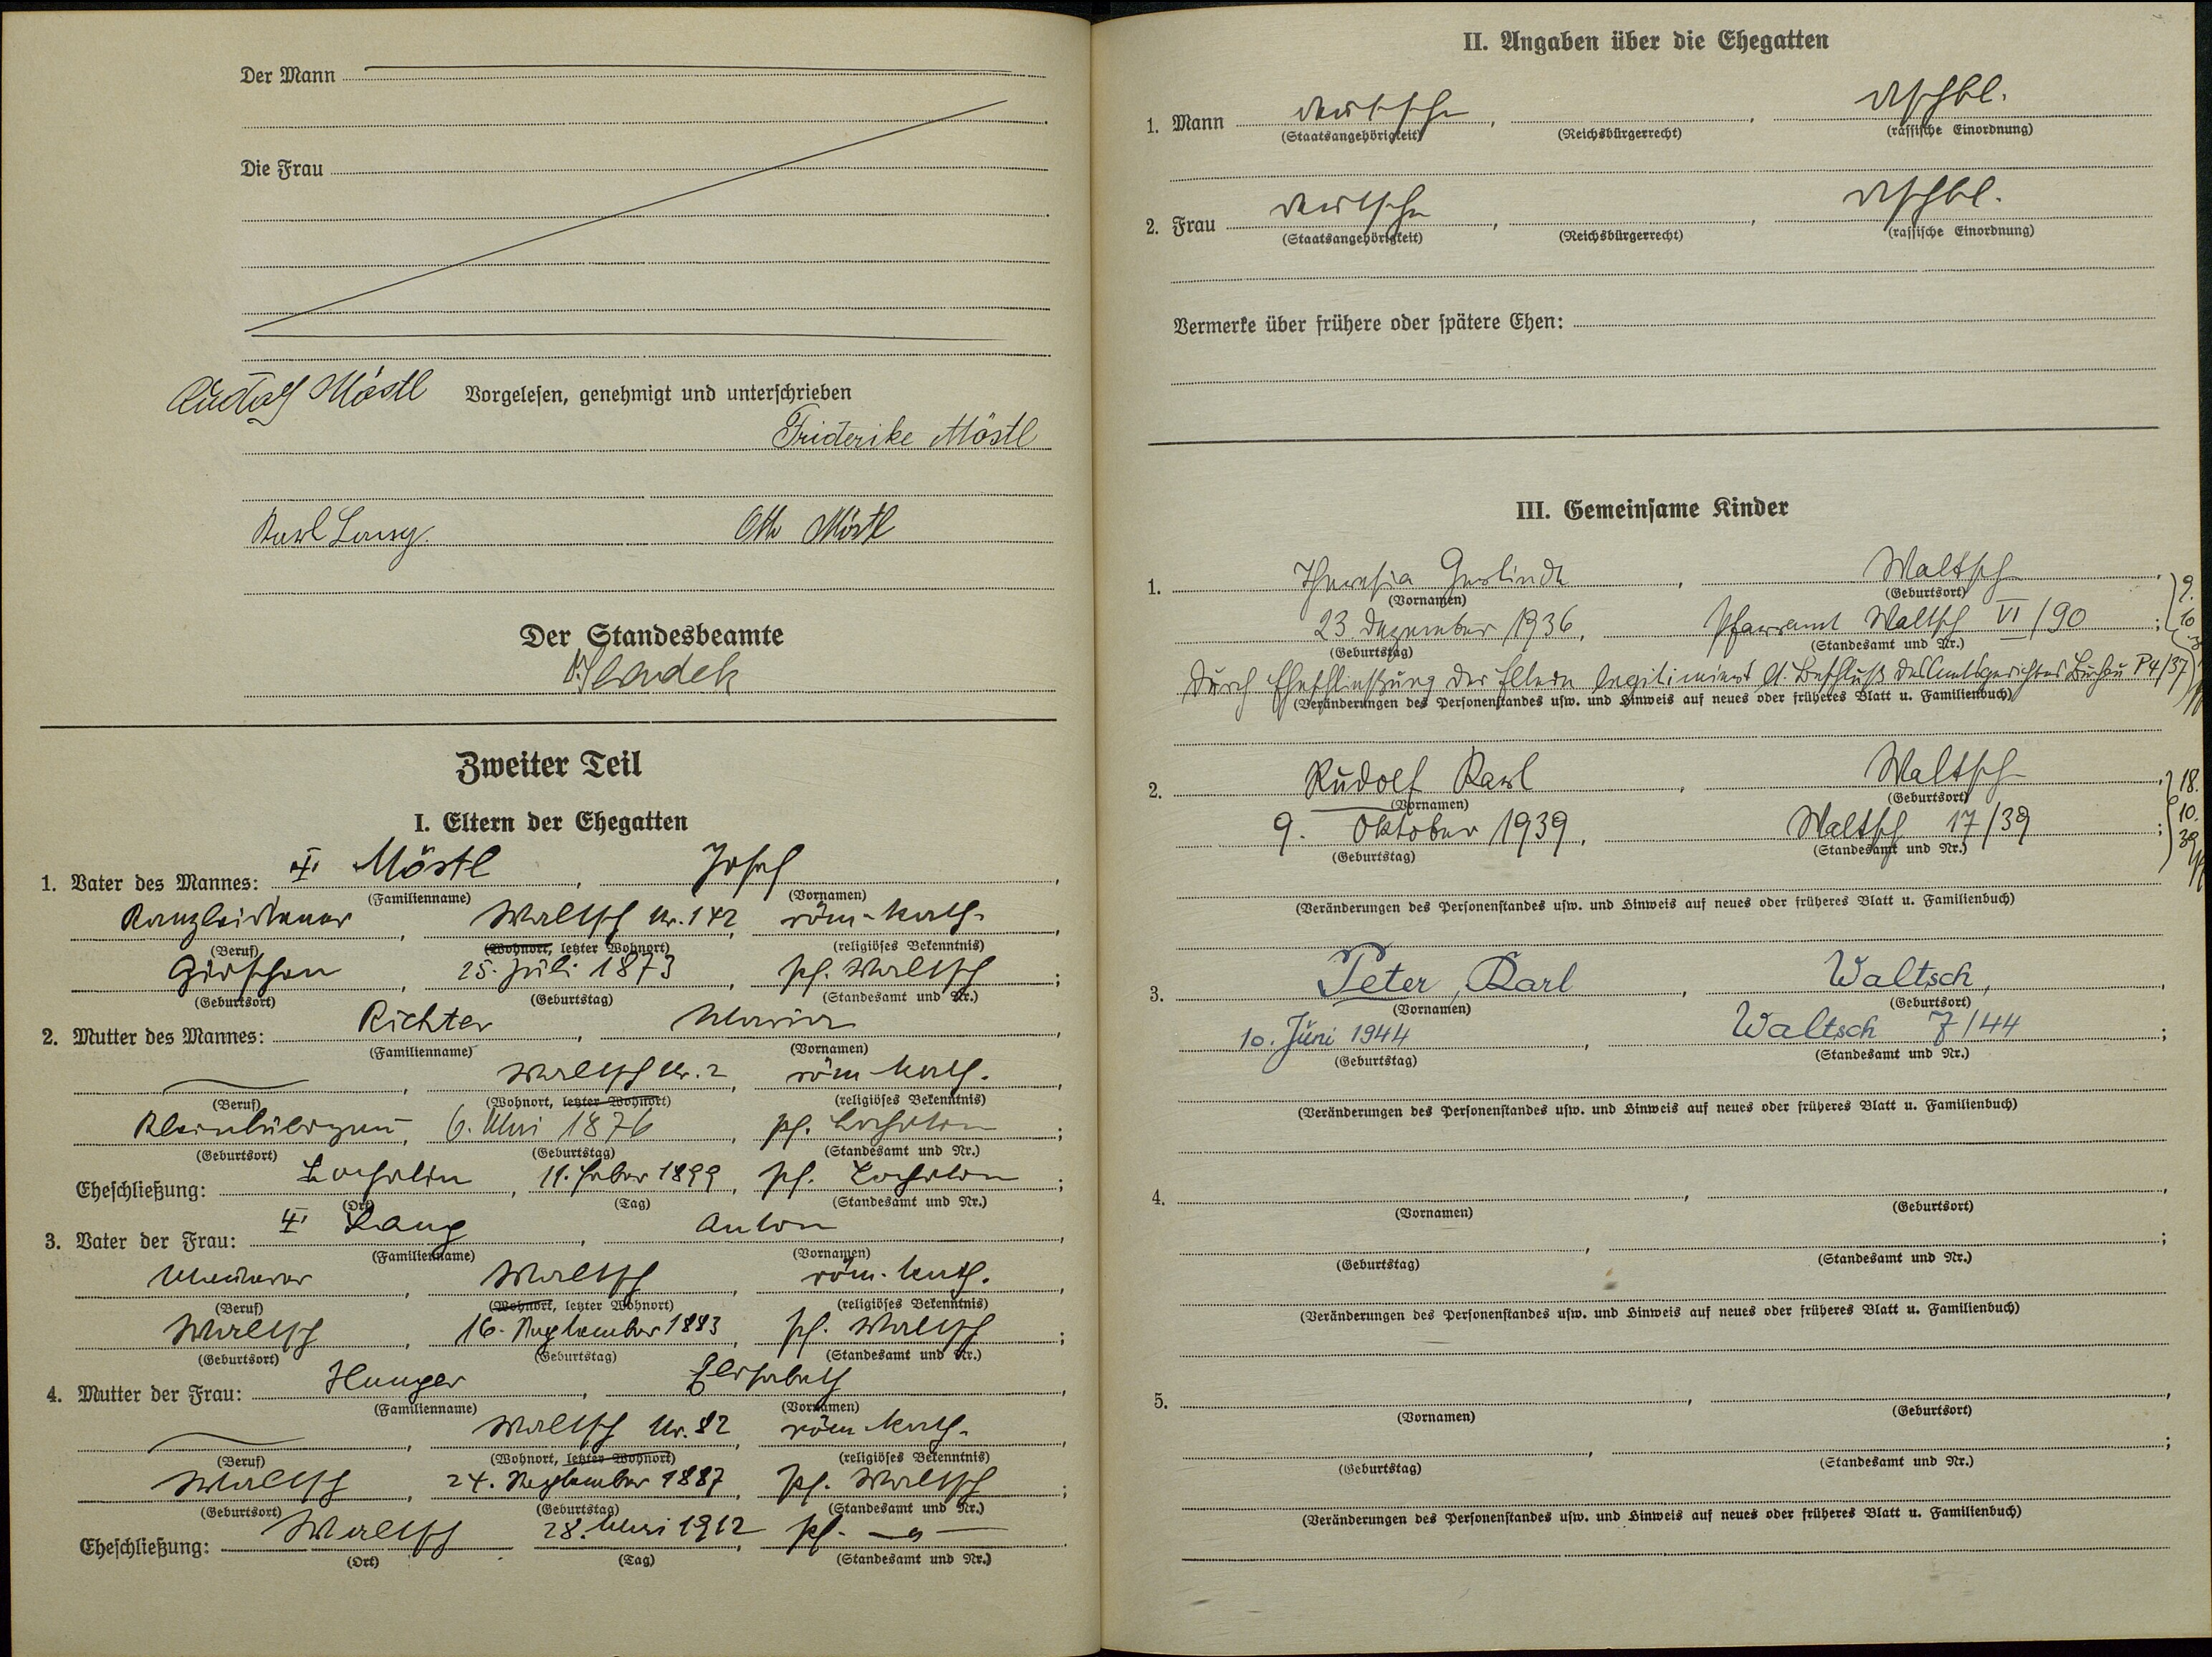 Der Mann
Die Frau
Rudolf Möstl Vorgelesen, genehmigt und unterschrieben
Friderike Möstl
Karl Lang. Otto Möstl
Der Standesbeamte
Zweiter Teil
I. Eltern der Ehegatten
1. Vater des Mannes: Möstl, Josef,
(Familienname) (Vornamen)
Kanzleidiener, Waltsch Nr. 142, röm-kath.,
(Beruf) (Wohnort, letzter Wohnort) (religiöses Bekenntnis)
25. Juli 1873, pf. Waltsch;
(Geburtsort) (Geburtstag) (Standesamt und Nr.)
2. Mutter des Mannes: Richter, Maria,
(Familienname) (Vornamen)
Waltsch Nr. 2, röm-kath.,
(Beruf) (Wohnort, letzter Wohnort) (religiöses Bekenntnis)
6. Mai 1876, pf. Lochotin;
(Geburtsort) (Geburtstag) (Standesamt und Nr.)
Eheschließung: Lochotin, 1899, pf. Lochotin;
(Ort) (Tag) (Standesamt und Nr.)
3. Vater der Frau: Lang, Anton
(Familienname) (Vornamen)
Maurer, Waltsch, röm-kath.,
(Beruf) (Wohnort, letzter Wohnort) (religiöses Bekenntnis)
Waltsch, 16. September 1883, pf. Waltsch;
(Geburtsort) (Geburtstag) (Standesamt und Nr.)
4. Mutter der Frau: Hunger, Elisabeth,
(Familienname) (Vornamen)
Waltsch Nr. 82, röm-kath.,
(Beruf) (Wohnort, letzter Wohnort) (religiöses Bekenntnis)
Waltsch, 24. September 1887, pf. Waltsch;
(Geburtsort) (Geburtstag) (Standesamt und Nr.)
Eheschließung: Waltsch 28. Mai 1912, pf. — " —
(Ort) (Tag) (Standesamt und Nr.)
II. Angaben über die Ehegatten
1. Mann deutsche, , dtschbl.
(Staatsangehörigkeit) (Reichsbürgerrecht) (rassische Einordnung)
2. Frau deutsche, , dtschbl.
(Staatsangehörigkeit) (Reichsbürgerrecht) (rassische Einordnung)
Vermerke über frühere oder spätere Ehen:
III. Gemeinsame Kinder
1. Theresia Gerlinde, Waltsch,
(Vornamen) (Geburtsort)
23. Dezember 1936, Pfarramt Waltsch VI/90;
(Geburtstag) (Standesamt und Nr.)
Durch Eheschließung der Eltern legitimiert lt. Beschluß des Amtsgerichtes Buchau P4/37
(Veränderungen des Personenstandes usw. und Hinweis auf neues oder früheres Blatt u. Familienbuch)
2. Rudolf Karl, Waltsch,
(Vornamen) (Geburtsort)
9. Oktober 1939, Waltsch 17/39;
(Geburtstag) (Standesamt und Nr.)
18. 10. 39
(Veränderungen des Personenstandes usw. und Hinweis auf neues oder früheres Blatt u. Familienbuch)
3. Peter, Karl, Waltsch,
(Vornamen) (Geburtsort)
10. Juni 1944, Waltsch 7/44;
(Geburtstag) (Standesamt und Nr.)
(Veränderungen des Personenstandes usw. und Hinweis auf neues oder früheres Blatt u. Familienbuch)
4. , ,
(Vornamen) (Geburtsort)
(Geburtstag) (Standesamt und Nr.)
(Veränderungen des Personenstandes usw. und Hinweis auf neues oder früheres Blatt u. Familienbuch)
5. , ,
(Vornamen) (Geburtsort)
(Geburtstag) (Standesamt und Nr.)
(Veränderungen des Personenstandes usw. und Hinweis auf neues oder früheres Blatt u. Familienbuch)